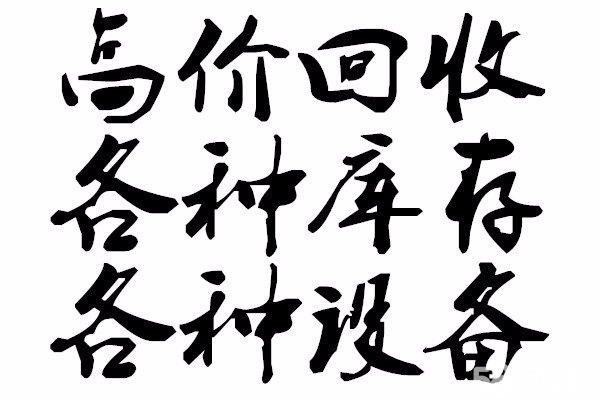 高价回收
各种库存
各种设备